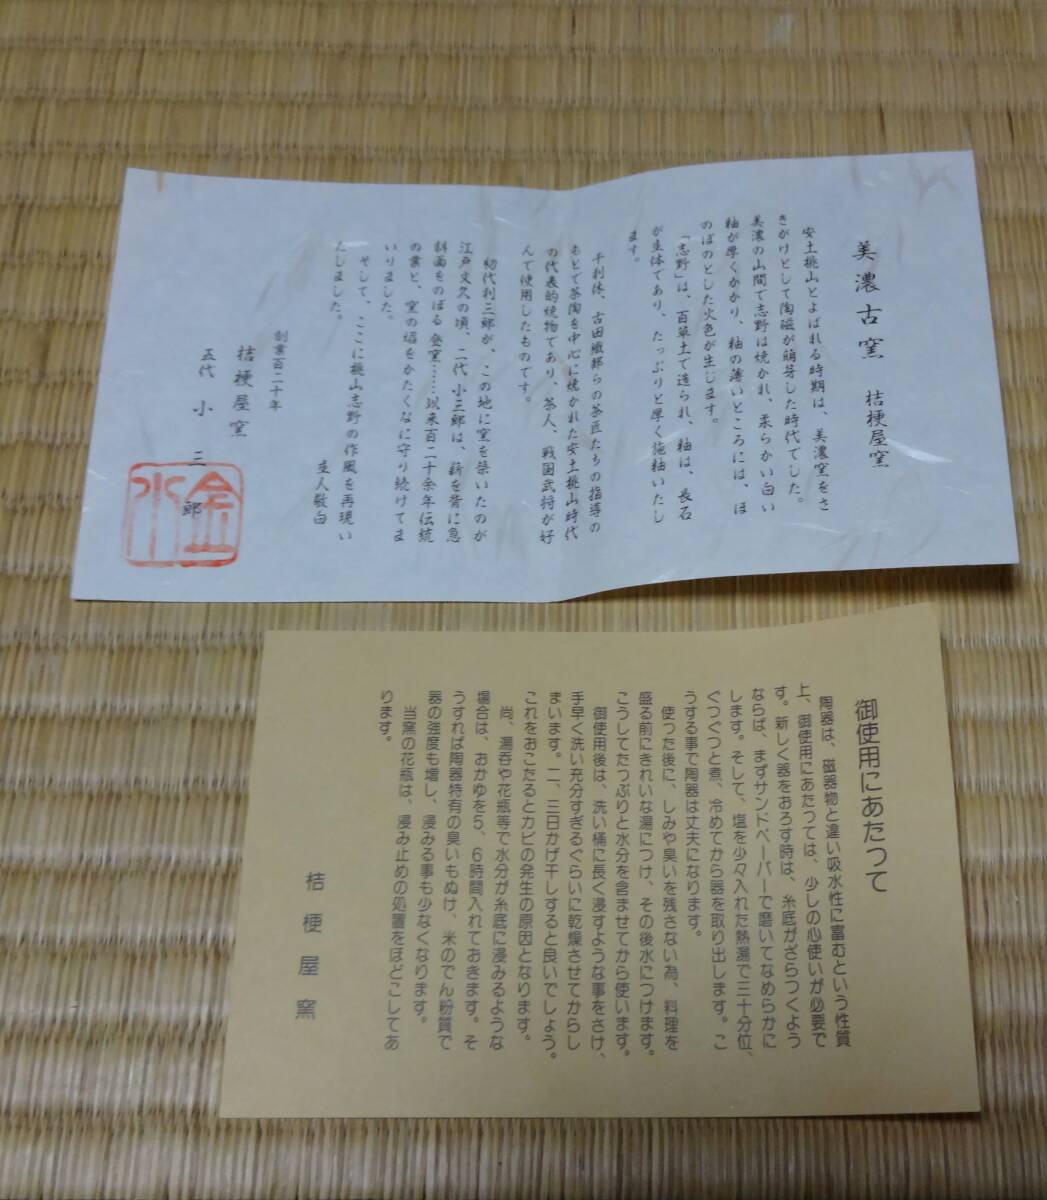 美濃古窯　桔梗屋窯
安土桃山とよばれる時期は、美濃窯をさ
きがけとして陶磁が萌芽した時代でした。
美濃の山間で志野は焼かれ、柔らかい白い
釉が厚くかかり、釉の薄いところには、ほ
のぼのとした火色が生じます。
「志野」は、百草土で造られ、釉は、長石
が主体であり、たっぷりと厚く施釉いたし
ます。
千利休、古田織部らの茶匠たちの指導の
もとで茶陶を中心に焼かれた安土桃山時代
の代表的焼物であり、茶人、戦国武将が好
んで使用したものです。
初代利三郎が、この地に窯を築いたのが
江戸文久の頃、二代小三郎は、薪を背に急
斜面をのぼる登窯……以来百二十余年伝統
の業と、窯の焔をかたくなに守り続けてま
いりました。
そして、ここに桃山志野の作風を再現い
たしました。
主人敬白
創業百二十年
桔梗屋窯
五代　小三郎
御使用にあたつて
陶器は、磁器物と違い吸水性に富むという性質
上、御使用にあたつては、少しの心使いが必要で
す。新しく器をおろす時は、糸底がざらつくよう
ならば、まずサンドペーパーで磨いてなめらかに
します。そして、塩を少々入れた熱湯で三十分位、
ぐつぐつと煮、冷めてから器を取り出します。こ
うする事で陶器は丈夫になります。
使つた後に、しみや臭いを残さない為、料理を
盛る前にきれいな湯につけ、その後水につけます。
こうしてたつぷりと水分を含ませてから使います。
御使用後は、洗い桶に長く浸すような事をさけ、
手早く洗い充分すぎるぐらいに乾燥させてからし
まいます。二、三日かげ干しすると良いでしょう。
これをおこたるとカビの発生の原因となります。
尚、湯呑や花瓶等で水分が糸底に浸みるような
場合は、おかゆを5、6時間入れておきます。そ
うすれば陶器特有の臭いもぬけ、米のでん粉質で
器の強度も増し、浸みる事も少なくなります。
当窯の花瓶は、浸み止めの処置をほどこしてあ
ります。
桔梗屋窯